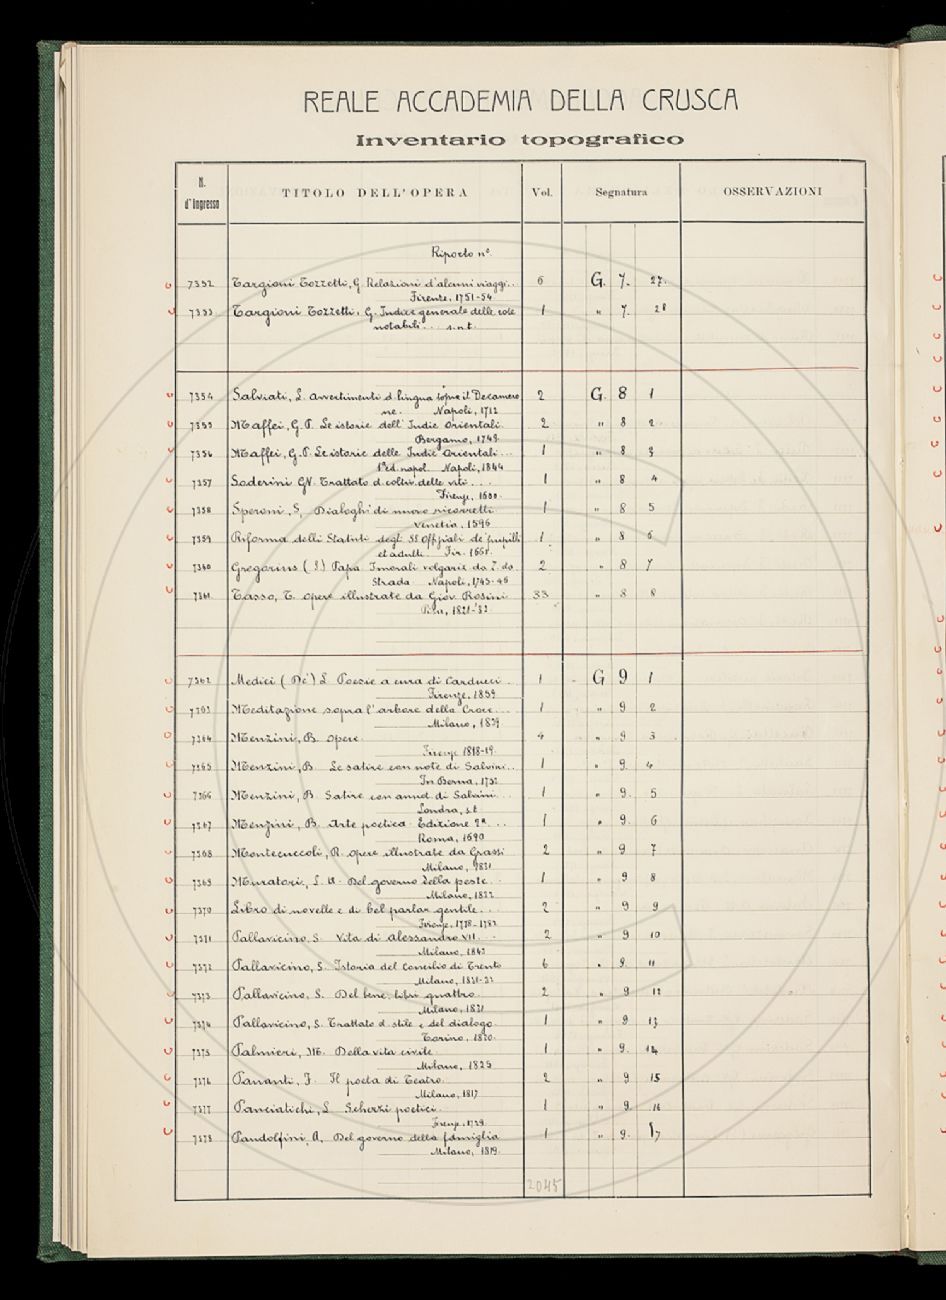 REALE ACCADEMIA DELLA CRUSCA
Inventario topografico
N. d'Ingresso TITOLO DELL'OPERA Vol. Segnatura OSSERVAZIONI
Riporto n°.
7352 Targioni Tozzetti, G. Relazioni d'alcuni viaggi... 6 G. 7. 27.
Firenze, 1751-54
7353 Targioni Tozzetti, G. Indice generale delle cose 1 " 7. 28
notabili... s.n.t.
7354 Salviati, L. Avvertimenti d. lingua sopra il Decamero 2 G. 8 1
ne. Napoli, 1712
7355 Maffei, G. P. Le istorie dell'Indie Orientali. 2 " 8 2.
Bergamo, 1749.
7356 Maffei, G. P. Le istorie delle Indie Orientali... 1 " 8 3
1ª ed. napol. Napoli, 1844
7357 Soderini GV. Trattato d. coltiv. delle viti... 1 " 8 4
Firenze, 1600.
7358 Speroni, S. Dialoghi di nuovo ricorretti 1 " 8 5
Venetia, 1596
7359 Riforma delli Statuti degli SS Offiziali de' pupilli 1 " 8 6
et adulti. Fir. 1665.
7360 Gregorius (S) Papa I morali volgariz. da Z. da 2 " 8 7
Strada Napoli, 1745-46
7361 Tasso, T. Opere illustrate da Giov. Rosini 33 " 8 8
Pisa, 1821-32
7362 Medici (De') L Poesie a cura di Carducci.. 1 G 9 1
Firenze, 1859
7363 Meditazione sopra l'arbore della Croce... 1 " 9 2
Milano, 1839
7364 Menzini, B. Opere. 4 " 9 3
Firenze 1818-19.
7365 Menzini, B. Le satire con note di Salvini.. 1 " 9. 4
In Berna, 1752
7366 Menzini, B. Satire con annot. di Salvini... 1 " 9. 5
Londra, s.t
7367 Menzini, B. Arte poetica. Edizione 2ª... 1 " 9. 6
Roma, 1690
7368 Montecuccoli, R. Opere illustrate da Grassi 2 " 9 7
Milano, 1831
7369 Muratori, L. A. Del governo della peste.. 1 " 9 8
Milano, 1832
7370 Libro di novelle e di bel parlar gentile... 2 " 9 9
Firenze, 1778-1782
7371 Pallavicino, S. Vita di Alessandro VII... 2 " 9 10
Milano, 1843
7372 Pallavicino, S. Istoria del Concilio di Trento 6 " 9. 11
Milano, 1831-33
7373 Pallavicino, S. Del bene. Libri quattro. 2 " 9 12
Milano, 1831
7374 Pallavicino, S. Trattato d. stile e del dialogo. 1 " 9 13
Torino, 1830.
7375 Palmieri, M. Della vita civile. 1 " 9. 14
Milano, 1825
7376 Pananti, F. Il poeta di Teatro. 2 " 9 15
Milano, 1817
7377 Panciatichi, L Scherzi poetici. 1 " 9. 16
Firenze, 1729.
7378 Pandolfini, A. Del governo della famiglia 1 " 9. 17
Milano, 1819.
2045